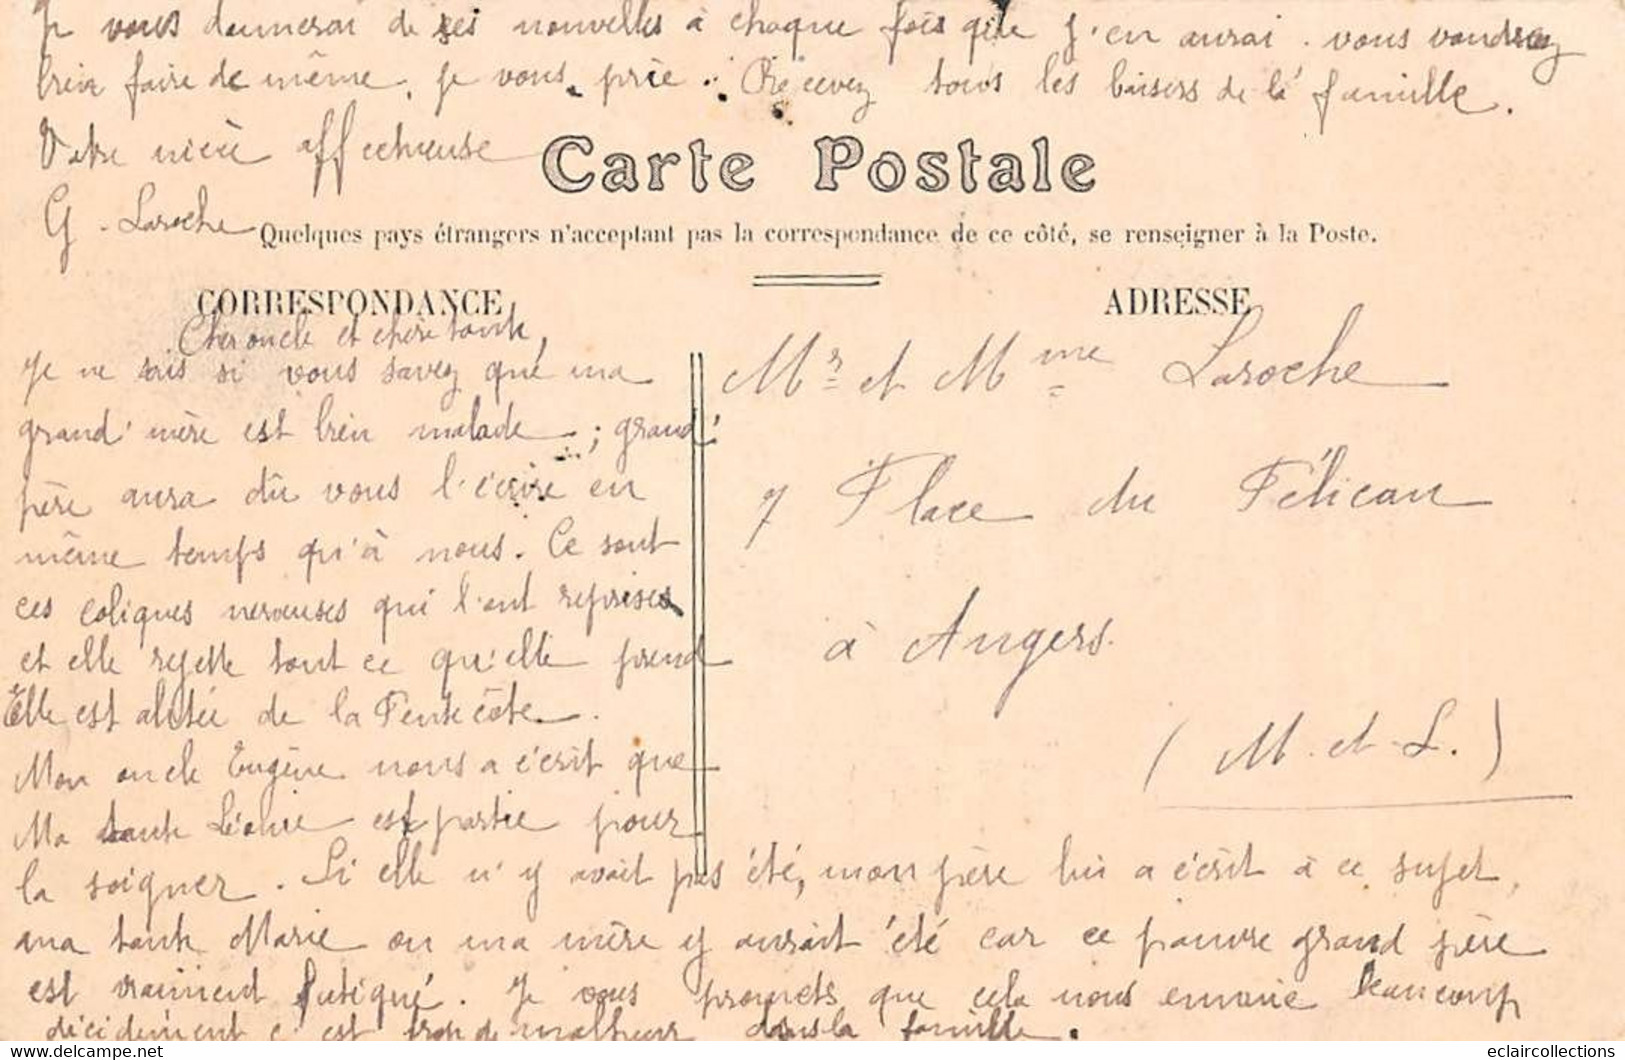 Je vous donnerai de ses nouvelles à chaque fois que j'en aurai. vous voudrez
bien faire de même, je vous prie. Recevez tous les baisers de la famille.
Votre nièce affectueuse
G. Laroche
Carte Postale
Quelques pays étrangers n'acceptant pas la correspondance de ce côté, se renseigner à la Poste.
CORRESPONDANCE
ADRESSE
Cher oncle et chère tante,
Je ne sais si vous savez que ma
grand'mère est bien malade; grand'
père aura dû vous l'écrire en
même temps qu'à nous. Ce sont
ces coliques nerveuses qui l'ont reprises
et elle rejette tout ce qu'elle prend
Elle est alitée de la Pentecôte.
Mon oncle Eugène nous a écrit que
Ma tante Léonie est partie pour
la soigner. Si elle n'y avait pas été, mon père lui a écrit à ce sujet,
ma tante Marie ou ma mère y aurait été car ce pauvre grand père
est vraiment fatigué. Je vous promets que cela nous ennuie beaucoup
décidément c'est trop de malheur dans la famille.
Mr et Mme Laroche
7 Place du Pélican
à Angers.
(M. et L.)
eclaircollections
www.delcampe.net